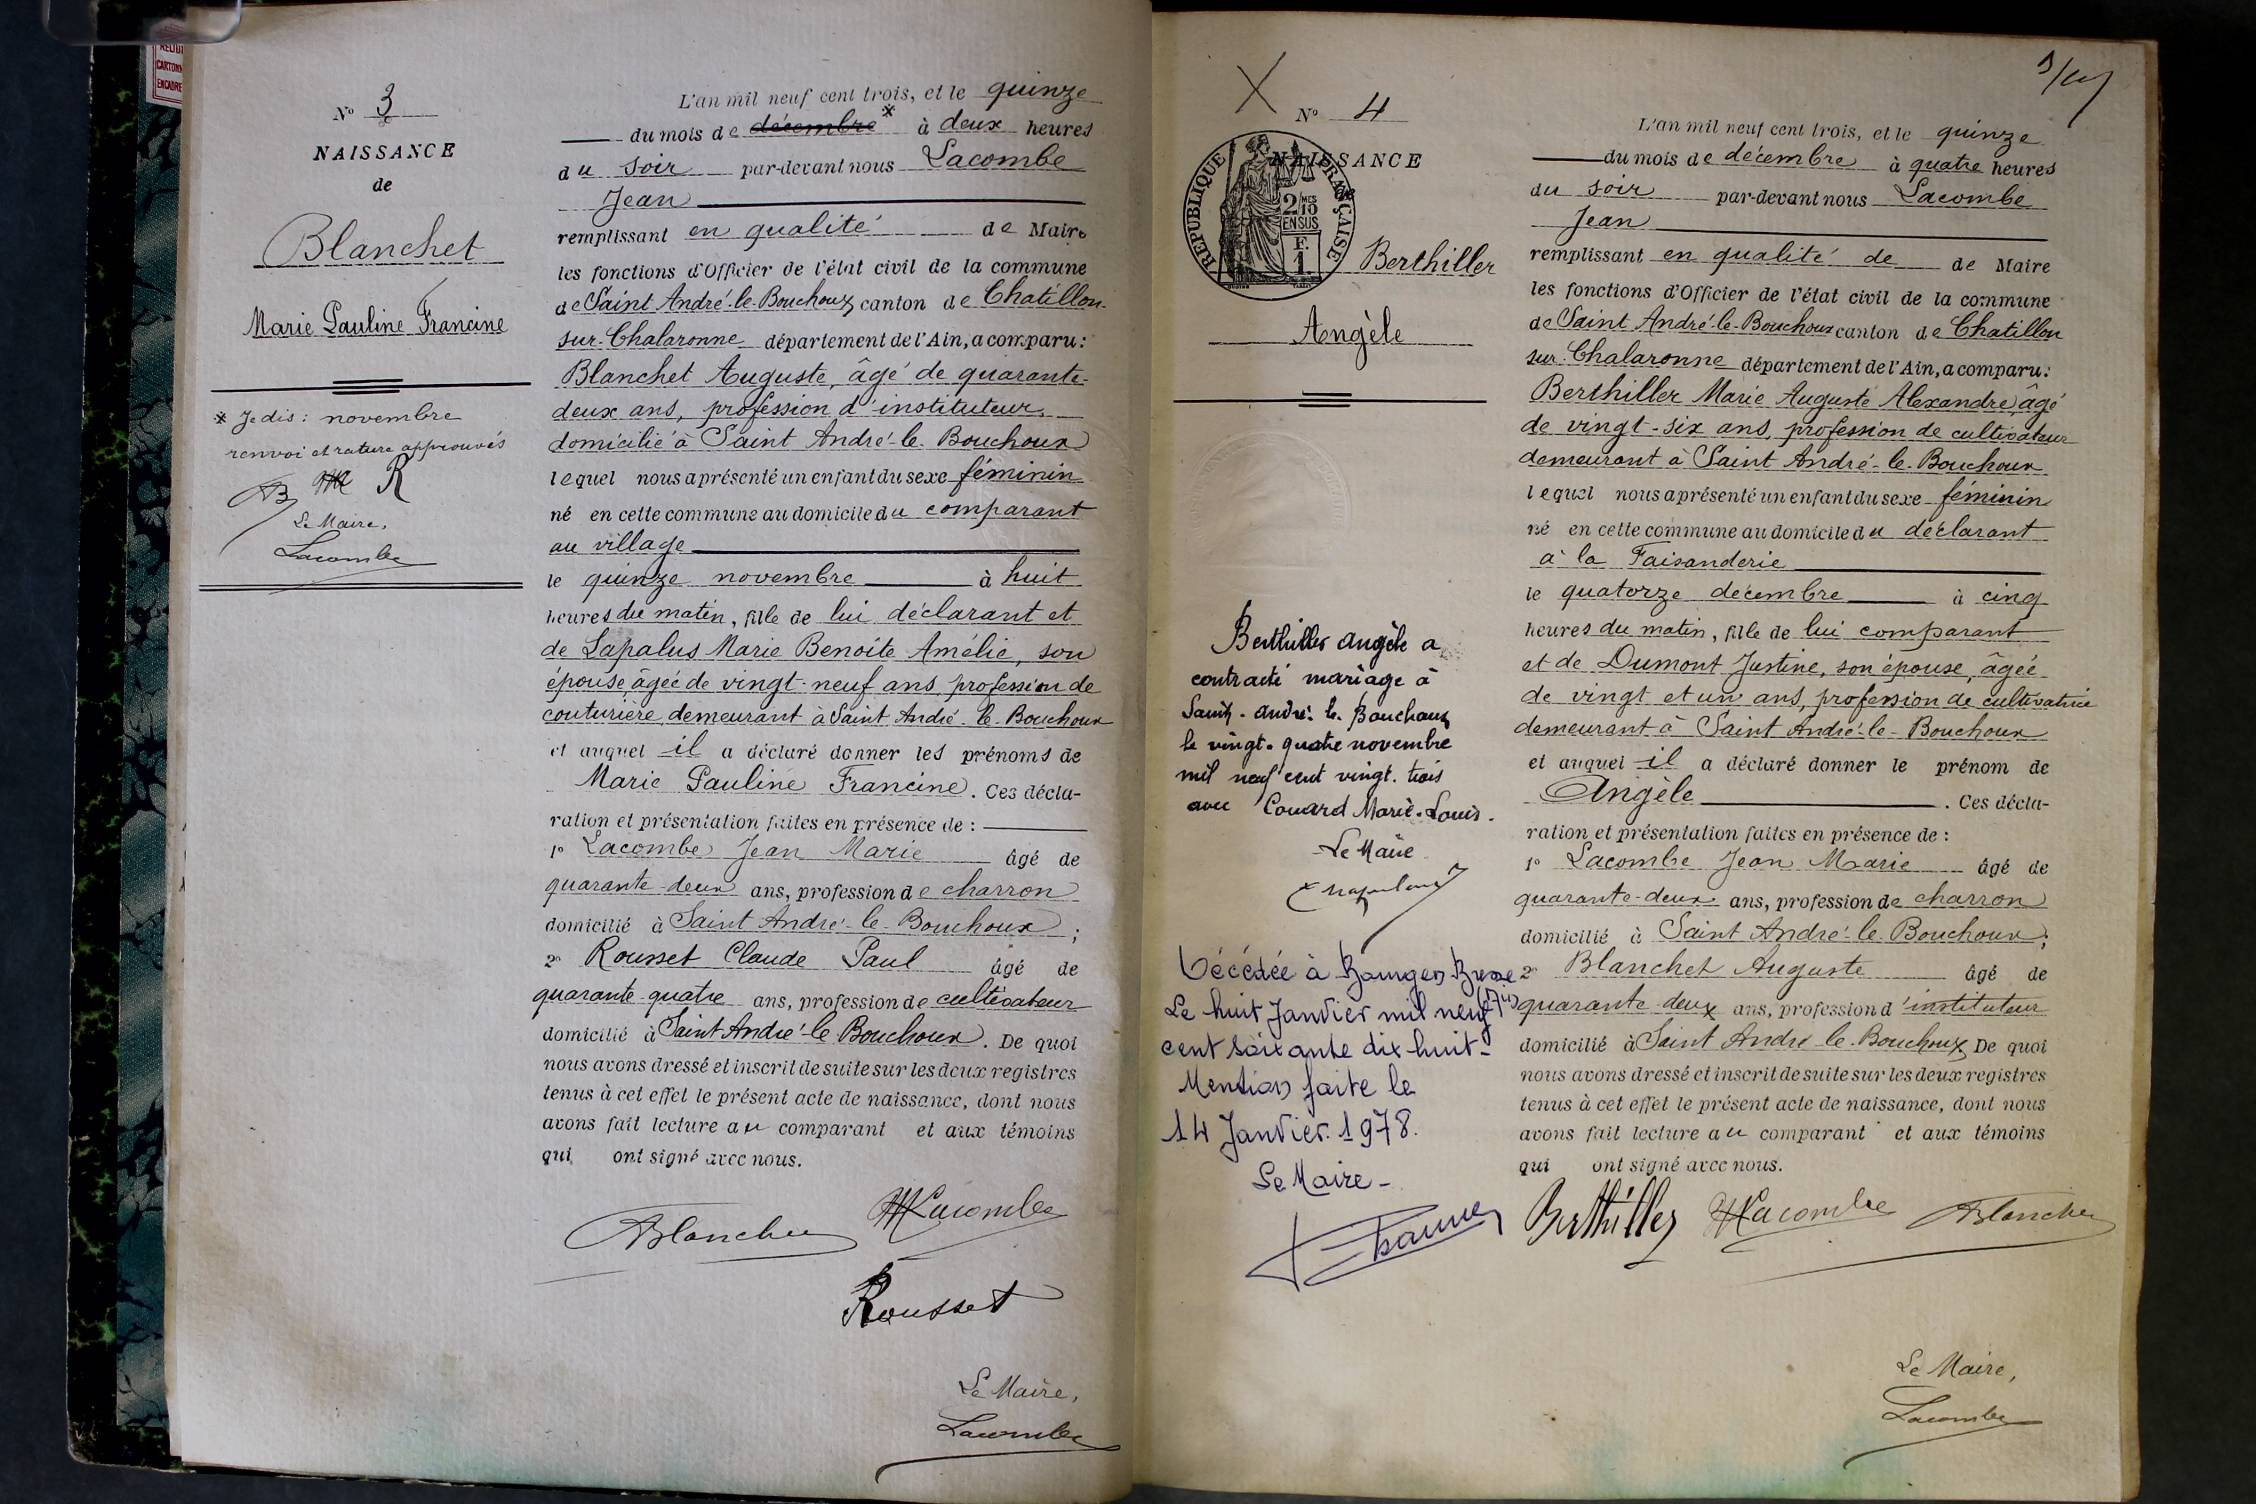 RELIU
CARTONN
ENCADRE
N° 3
NAISSANCE
de
Blanchet
Marie Pauline Francine
* Je dis : novembre
renvoi et rature approuvés
AB R
Le Maire,
Lacombe
L'an mil neuf cent trois, et le quinze
du mois de décembre * à deux heures
du soir par-devant nous Lacombe
Jean
remplissant en qualité de Maire
les fonctions d'Officier de l'état civil de la commune
de Saint André-le-Bouchoux canton de Chatillon-
sur-Chalaronne département de l'Ain, a comparu :
Blanchet Auguste, âgé de quarante-
deux ans, profession d'instituteur
domicilié à Saint André-le-Bouchoux
lequel nous a présenté un enfant du sexe féminin
né en cette commune au domicile du comparant
au village
le quinze novembre à huit
heures du matin, fille de lui déclarant et
de Lapalus Marie Benoite Amélie, son
épouse, âgée de vingt-neuf ans profession de
couturière demeurant à Saint André-le-Bouchoux
et auquel il a déclaré donner les prénoms de
Marie Pauline Francine. Ces décla-
ration et présentation faites en présence de :
1° Lacombe Jean Marie âgé de
quarante-deux ans, profession de charron
domicilié à Saint André-le-Bouchoux ;
2° Rousset Claude Paul âgé de
quarante-quatre ans, profession de cultivateur
domicilié à Saint André-le Bouchoux. De quoi
nous avons dressé et inscrit de suite sur les deux registres
tenus à cet effet le présent acte de naissance, dont nous
avons fait lecture au comparant et aux témoins
qui ont signé avec nous.
ABlanchet JMLacombe
Rousset
Le Maire,
Lacombe
N° 4
NAISSANCE
RÉPUBLIQUE FRANÇAISE
2/10 MES
EN SUS
F.
1.
Berthiller
Angèle
Berthiller Angèle a
contracté mariage à
Saint-André-le-Bouchoux
le vingt-quatre novembre
mil neuf cent vingt-trois
avec Couard Marie-Louis.
Le Maire
Décédée à Bourg en Bresse
Le huit Janvier mil neuf
cent soixante dix huit-
Mention faite le
14 Janvier 1978.
Le Maire-
L'an mil neuf cent trois, et le quinze
du mois de décembre à quatre heures
du soir par-devant nous Lacombe
Jean
remplissant en qualité de de Maire
les fonctions d'Officier de l'état civil de la commune
de Saint André-le-Bouchoux canton de Chatillon
sur-Chalaronne département de l'Ain, a comparu :
Berthiller Marie Auguste Alexandre, âgé
de vingt-six ans, profession de cultivateur
demeurant à Saint André-le-Bouchoux
lequel nous a présenté un enfant du sexe féminin
né en cette commune au domicile du déclarant
à la Faisanderie
le quatorze décembre à cinq
heures du matin, fille de lui comparant
et de Dumont Justine, son épouse, âgée
de vingt et un ans, profession de cultivatrice
demeurant à Saint André-le-Bouchoux
et auquel il a déclaré donner le prénom de
Angèle. Ces décla-
ration et présentation faites en présence de :
1° Lacombe Jean Marie âgé de
quarante-deux ans, profession de charron
domicilié à Saint André-le-Bouchoux ;
2° Blanchet Auguste âgé de
quarante-deux ans, profession d'instituteur
domicilié à Saint André le-Bouchoux De quoi
nous avons dressé et inscrit de suite sur les deux registres
tenus à cet effet le présent acte de naissance, dont nous
avons fait lecture au comparant et aux témoins
qui ont signé avec nous.
Berthiller JMLacombe ABlanchet
Le Maire,
Lacombe